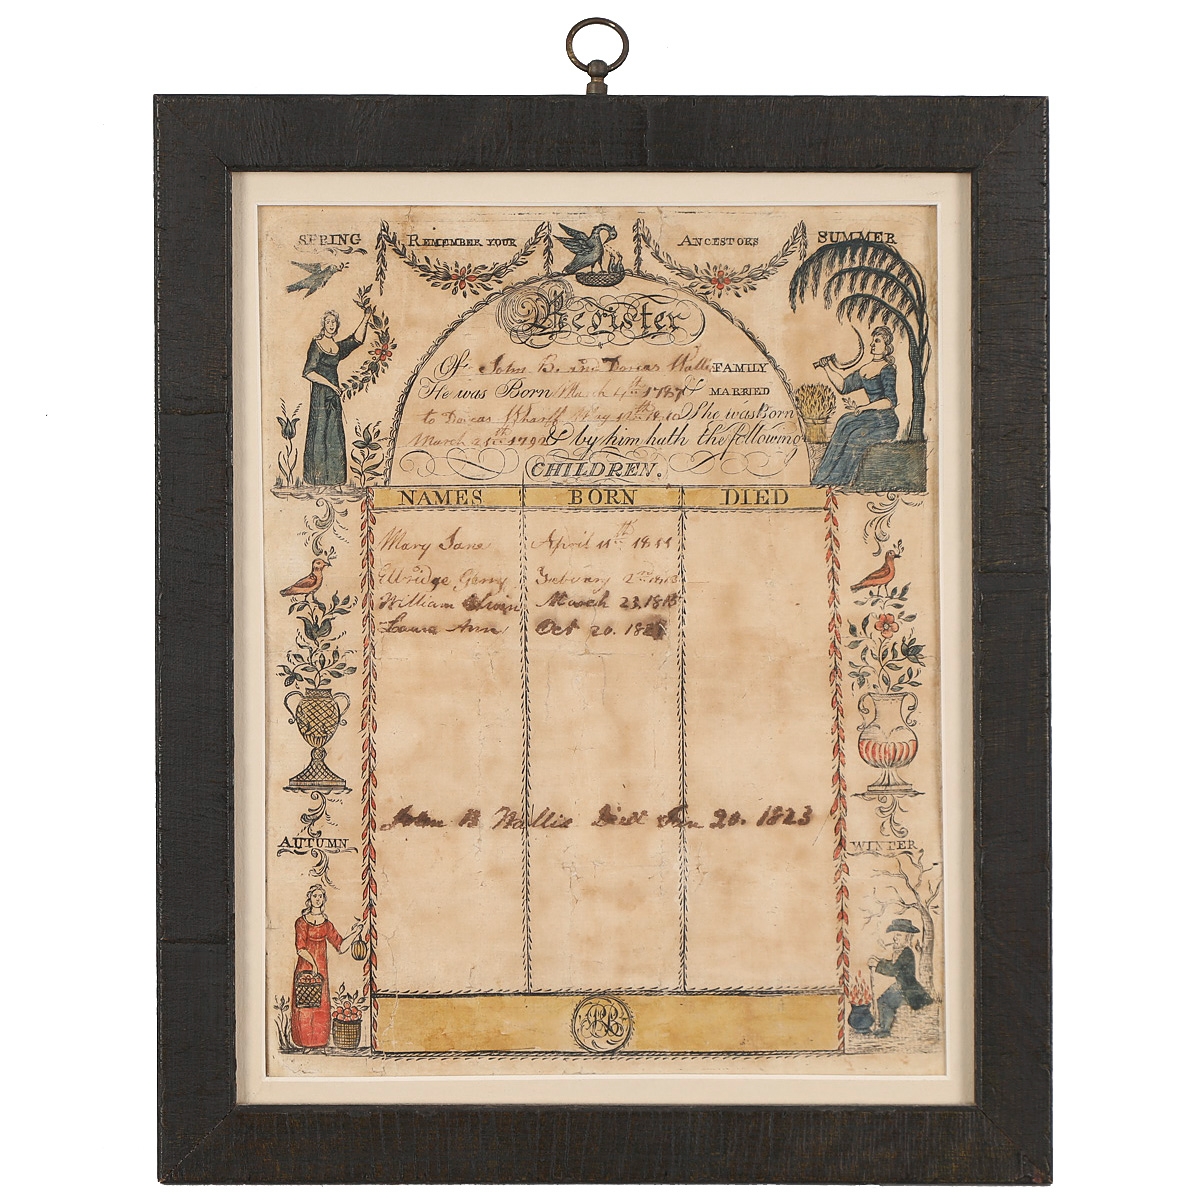 SPRING REMEMBER YOUR ANCESTORS SUMMER
Register
Of John B. and Dorcas Wallis FAMILY
He was Born March 4th 1787 & MARRIED
to Dorcas May 12th She was Born
March & by him hath the following
CHILDREN.
NAMES BORN DIED
Mary Jane April 11th 1811
Elbridge Gerry Febuary 2nd 1813
William March 23, 1818
Laura Ann Oct 20. 1821
John B Wallis Died Jan 20. 1823
AUTUMN WINTER